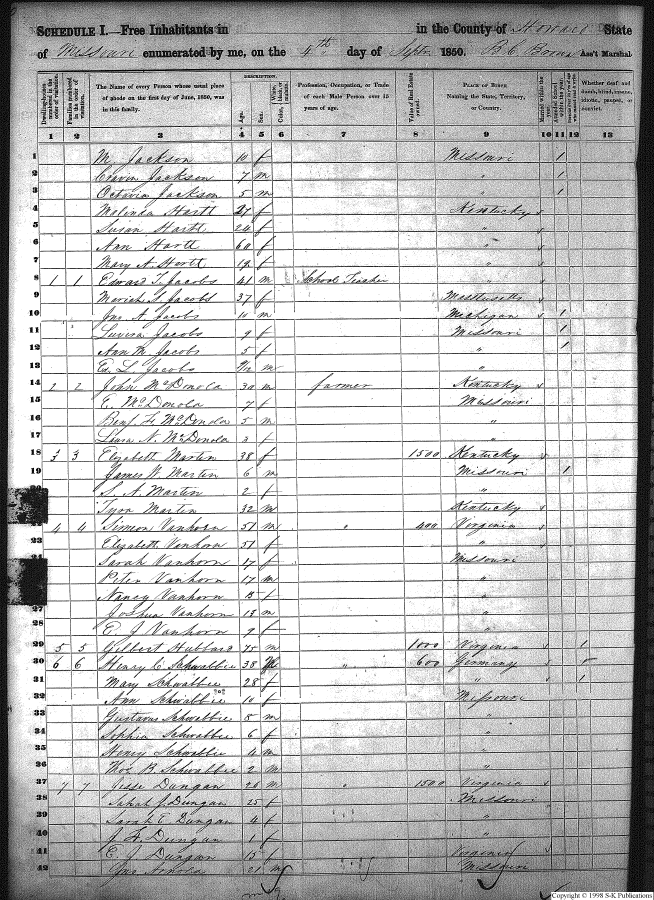 SCHEDULE I.—Free Inhabitants in in the County of Howard State
of Missouri enumerated by me, on the 4th day of Sept 1850. B C Ass't Marshal
DESCRIPTION.
Dwelling-houses numbered in the order of visitation.
Families numbered in the order of visitation.
The Name of every Person whose usual place of abode on the first day of June, 1850, was in this family.
Age.
Sex.
White, black, or mulatto.
Profession, Occupation, or Trade of each Male Person over 15 years of age.
Value of Real Estate owned.
PLACE OF BIRTH
Naming the State, Territory, or Country.
Married within the year.
Whether deaf and dumb, blind, insane, idiotic, pauper, or convict.
1 2 3 4 5 6 7 8 9 10 11 12 13
1 M Jackson 10 f Missouri 1
2 Jackson 7 m " 1
3 Octavia Jackson 5 m " 1
4 Malinda Hartt 27 f Kentucky
5 Susan Hartt 24 f "
6 Ann Hartt 60 f "
7 Mary A. Hartt 12 f "
8 1 1 Edward T. Jacobs 41 m School Teacher "
9 Jacobs 37 f
10 Jno. A. Jacobs 10 m Michigan 1
11 Luvisa Jacobs 9 f Missouri 1
12 Ann M Jacobs 5 f " 1
13 Ed. L. Jacobs m "
14 2 2 John McDonola 30 m farmer Kentucky
15 E. McDonola 7 f Missouri
16 Benj. F. McDonola 5 m "
17 Laura N. McDonola 3 f "
18 3 3 Elizabeth Martin 38 f 1500 Kentucky
19 James W. Martin 6 m Missouri 1
S. A. Martin 2 f "
Martin 32 m Kentucky
4 4 Simeon Vanhorn 51 m " 400 Virginia
Elizabeth Vanhorn 51 f "
Sarah Vanhorn 17 f Missouri
Peter Vanhorn 17 m "
Nancy Vanhorn f "
27 Joshua Vanhorn 13 m "
28 E. J Vanhorn 9 f "
29 5 5 Gilbert Hubbard 75 m 1000 Virginia 1
30 6 6 Henry C Schwabbie 38 " 600 Germany
31 Mary Schwabbie 28 f " 1
32 Ann Schwabbie 10 f Missouri
33 Gustavus Schwabbie 8 m "
34 Sophia Schwabbie 6 f "
35 Henry Schwabbie 4 m "
36 Thos B. Schwabbie 2 m "
37 7 7 Jesse Dungan 26 m " 1500 Virginia
38 J. Dungan 25 f Missouri
39 Sarah E Dungan 4 f "
40 J. H. Dungan 1 f "
41 E. J Dungan 15 f Virginia
42 Jno 21 m Missouri
Copyright © 1998 S-K Publications